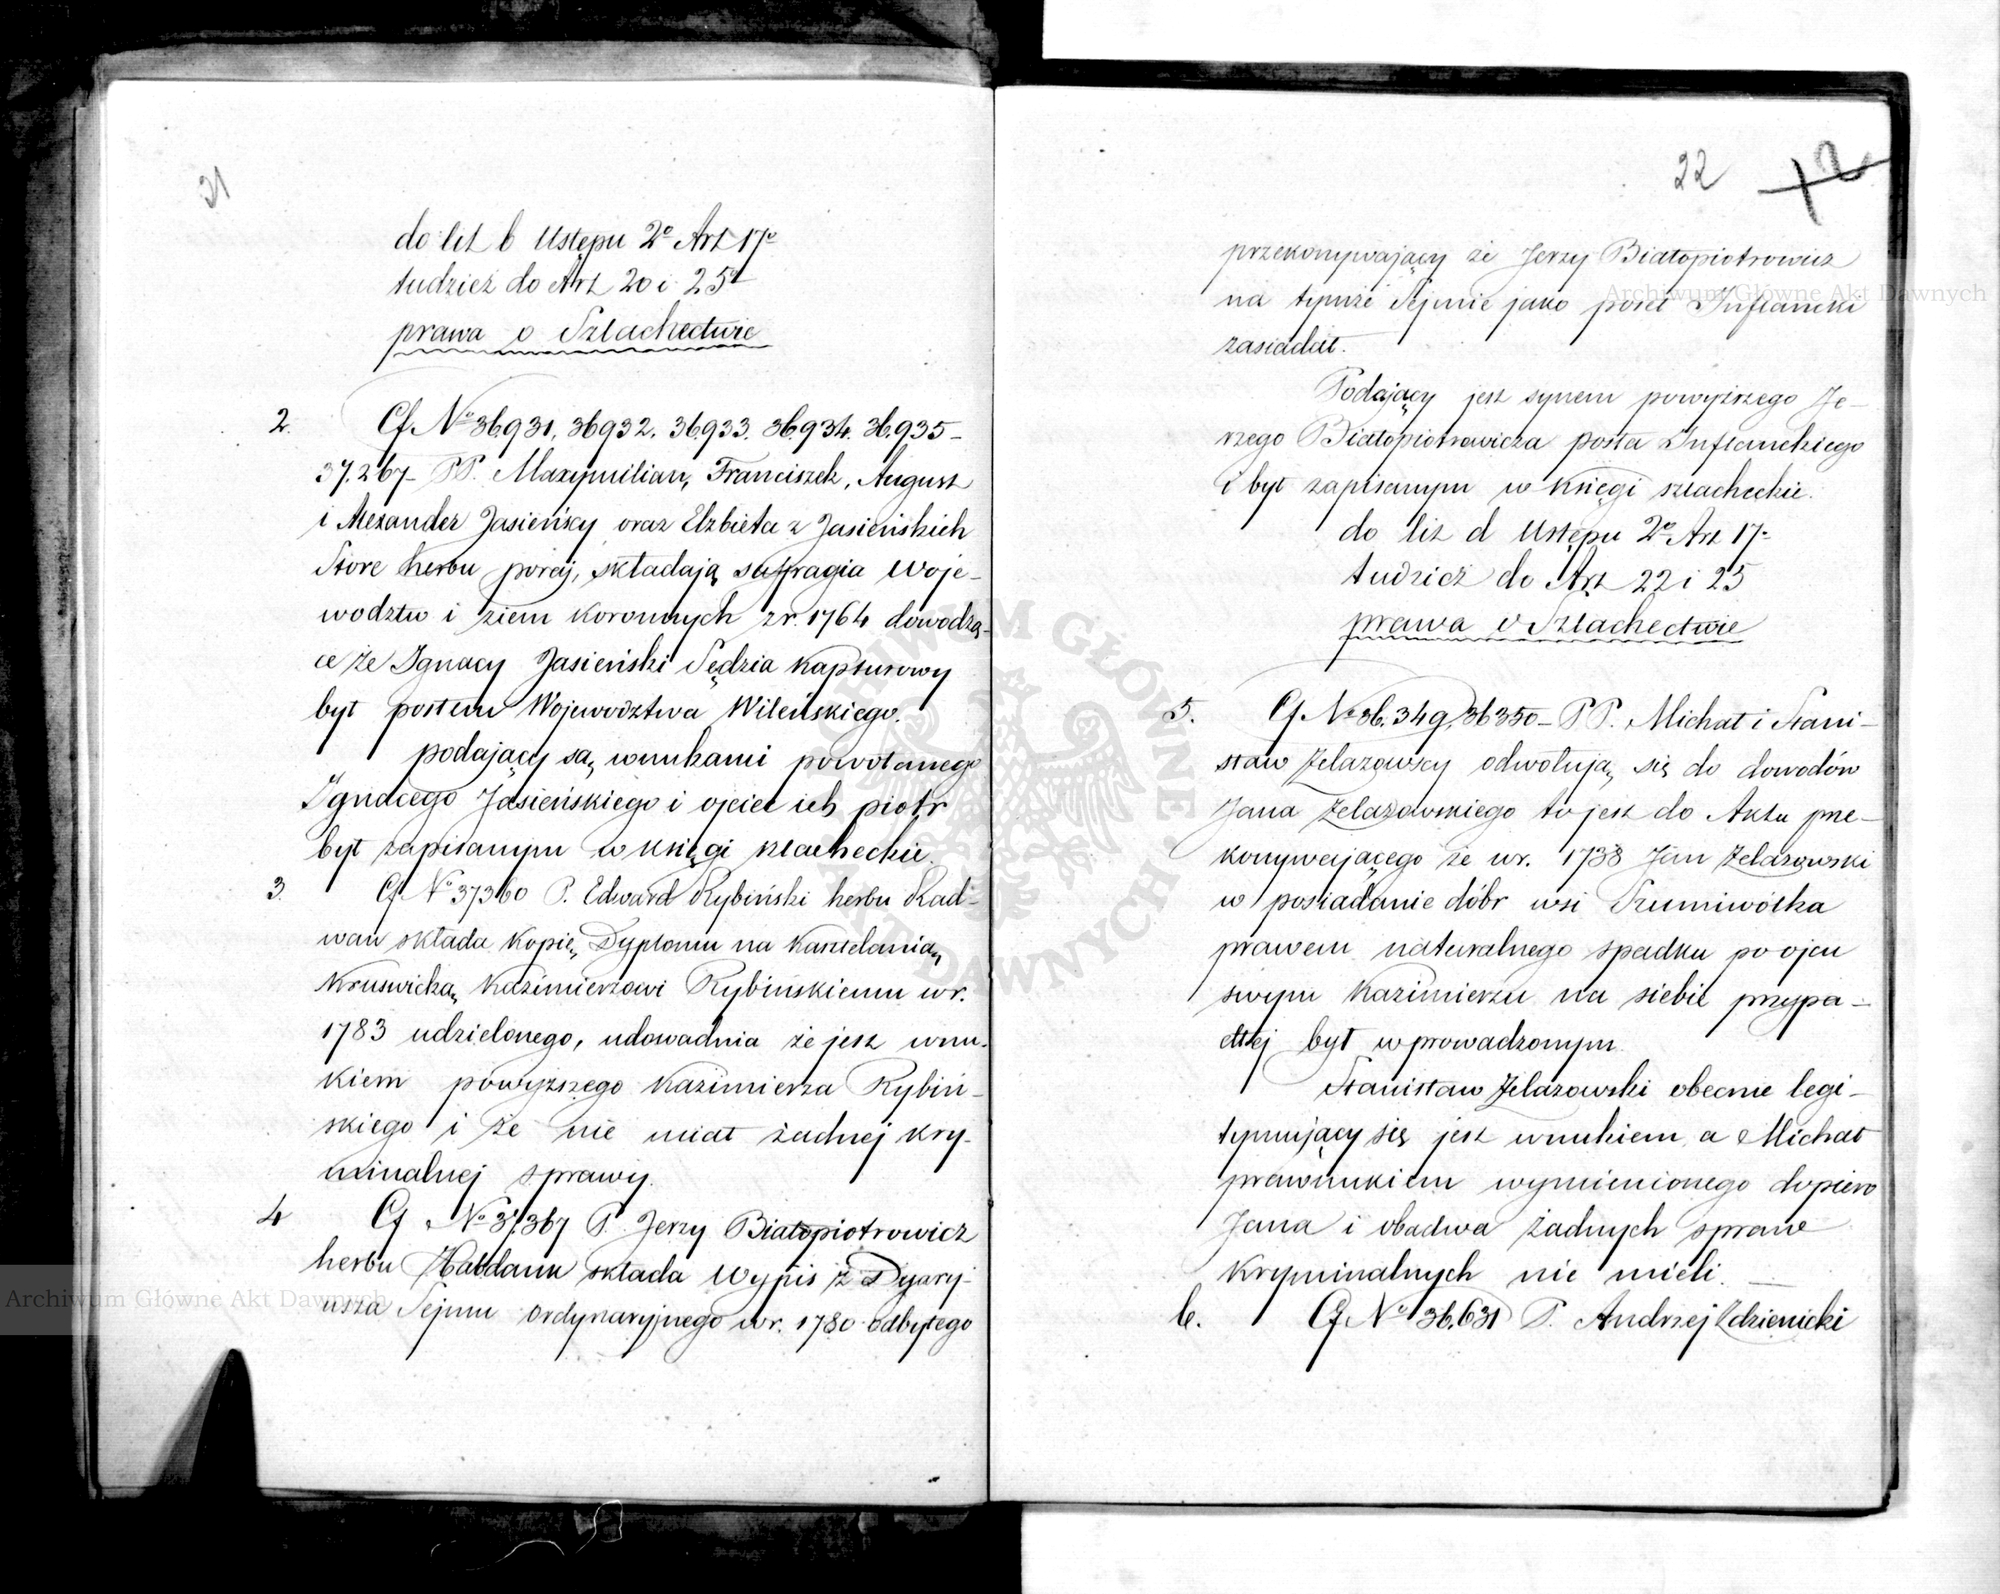 21
do lit b Ustępu 2º Art 17º
tudzież do Art 20 i 25º
prawa o Szlachectwie
2. Cf Nº 36931, 36932. 36933. 36934. 36935–
37.267– PP. Maxymilian, Franciszek, August
i Alexander Jasieńscy oraz Elżbieta z Jasieńskich
Store herbu poraj, składają suffragia Woje–
wodztw i ziem koronnych z r. 1764 dowodzą–
ce że Ignacy Jasieński Sędzia kapturowy
był posłem Województwa Wileńskiego.
podający są wnukami powołanego
Ignacego Jasieńskiego i ojciec ich piotr
był zapisanym w księgi szlacheckie.
3. Cf Nº 37360 P. Edward Rybiński herbu Rad–
wan składa kopię Dyplomu na kasztelanią
Kruswicką Kazimierzowi Rybińskiemu w r.
1783 udzielonego, udowadnia że jest wnu–
kiem powyższego Kazimierza Rybiń–
skiego i że nie miał żadnej kry–
minalnej sprawy.
4 Cf Nº 37.367 P. Jerzy Białopiotrowicz
herbu Habdank składa Wypis z Dyary–
usza Sejmu ordynaryjnego w r. 1780 odbytego
22 12
przekonywający że Jerzy Białopiotrowicz
na tymże Sejmie jako poseł Inflancki
zasiadał.
Podający jest synem powyższego Je–
rzego Białopiotrowicza posła Inflanckiego
i był zapisanym w księgi szlacheckie.
do lit d Ustępu 2º Art 17º
tudzież do Art 22 i 25
prawa o Szlachectwie
5. Cf Nº 36.349, 36350– PP. Michał i Stani–
sław Żelazowscy odwołują się do dowodów
Jana Żelazowskiego to jest do Aktu prze–
konywającego że w r. 1738 Jan Żelazowski
w posiadanie dóbr wsi Szumiwółka
prawem naturalnego spadku po ojcu
swym Kazimierzu na siebie przypa–
dłej był wprowadzonym.
Stanisław Żelazowski obecnie legi–
tymujący się jest wnukiem a Michał
prawnukiem wymienionego dopiero
Jana i obadwa żadnych spraw
kryminalnych nie mieli. –
6. Cf Nº 36.631 P. Andrzej Zdzienicki
Archiwum Główne Akt Dawnych
Archiwum Główne Akt Dawnych
ARCHIWUM GŁÓWNE AKT DAWNYCH